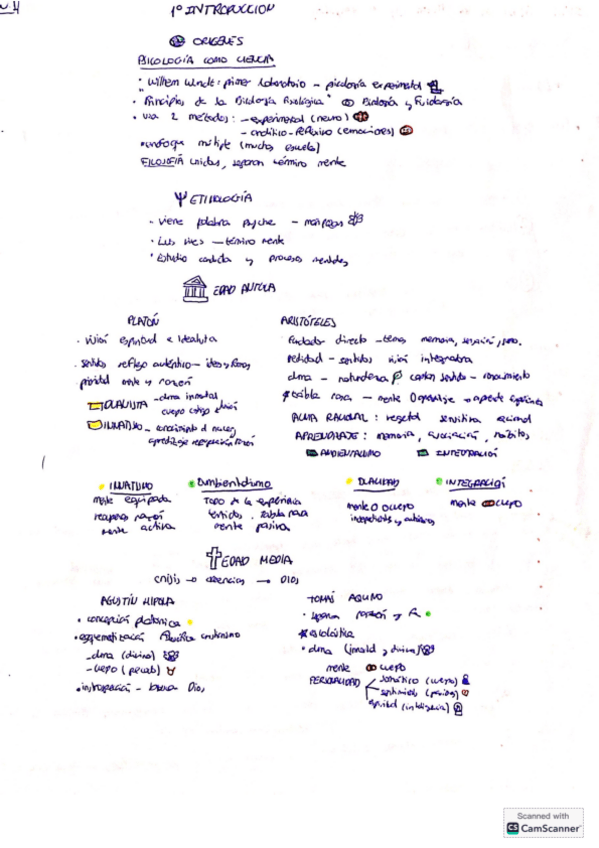 1º INTRODUCCION
ORIGENES
PSICOLOGÍA COMO CIENCIA
· Wilhem Wundt: primer laboratorio – psicología experimental
· "Principios de la Psicología Fisiológica" Biología y Fisiología
· usa 2 métodos: – experimental (neuro)
– analítico-reflexivo (emociones)
· enfoque múltiple (muchas escuelas)
FILOSOFÍA unidas, separan término mente
Ψ ETIMOLOGÍA
· Viene palabra psyche – mariposa
· Luis Vives – término mente
· Estudio conducta y procesos mentales
EDAD ANTIGUA
PLATÓN
· Visión espiritual e idealista
· sentidos reflejo auténtico – ideas y
prioridad mente y razón
DUALISTA – alma inmortal
cuerpo
INNATISMO – conocimiento al nacer,
aprendizaje recuperación razón
ARISTÓTELES
Fundador directo – temas memoria, sensación,
Realidad – sentidos visión integradora
alma – naturaleza conocimiento
tabula rasa – mente
ALMA RACIONAL: vegetal sensitiva animal
APRENDIZAJE: memoria, asociación, hábitos
AMBIENTALISMO INTEGRACIÓN
INNATISMO
mente equipada
recuperar razón
mente activa
Ambientalismo
Todo de la experiencia
sentidos, tabula rasa
mente pasiva
DUALIDAD
mente o cuerpo
independientes y autónomos
INTEGRACIÓN
mente cuerpo
EDAD MEDIA
crisis → creencias → DIOS
AGUSTÍN HIPONA
· concepción platónica
· cristianismo
– alma (divino)
– cuerpo (pecado)
· introspección – busca Dios
TOMÁS AQUINO
· razón y fe
escolástica
· alma (inmortal y divina)
mente cuerpo
PERSONALIDAD somático (cuerpo)
sentimientos (pasiones)
espiritual (inteligencia)
Scanned with
CS CamScanner